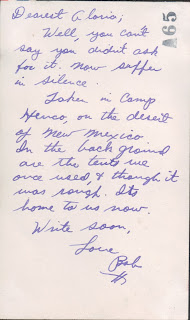 Dearest Gloria;
Well, you can't
say you didn't ask
for it. Now suffer
in silence.
Taken in Camp
on the desert
of New Mexico
In the background
are the tents we
once used, & though it
was rough. Its
home to us now.
Write soon,
Love
Bob
A65